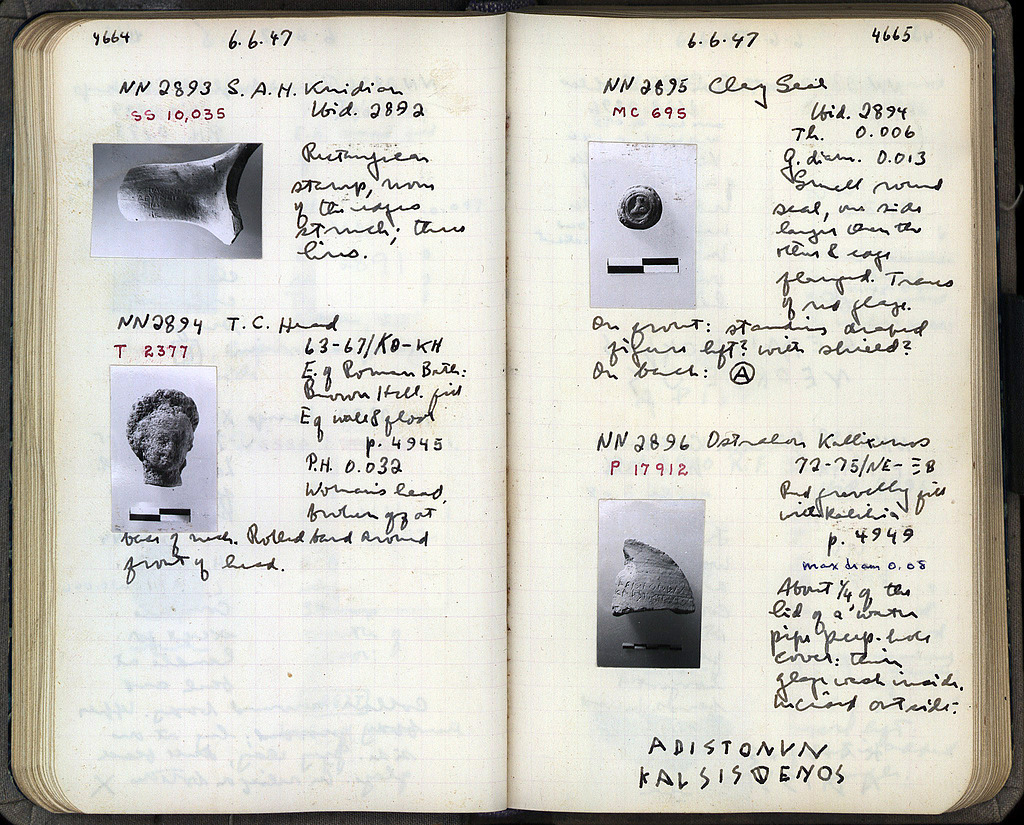 4664
6.6.47
NN 2893 S. A. H. Knidian
SS 10,035
Ibid. 2892
Rectangular
stamp, none
of the edges
struck; three
lines.
NN 2894 T. C. Head
T 2377
63-67/ΚΘ-ΚΗ
E. of Roman Bath:
Brown Hell. fill
E of wall & floor
p. 4945
P.H. 0.032
Woman's head,
broken off at
base of neck. Rolled band around
front of head.
6.6.47
4665
NN 2895 Clay Seal
MC 695
Ibid. 2894
Th. 0.006
G. diam. 0.013
Small round
seal, one side
larger than the
other & edge
flanged. Traces
of red glaze.
On front: standing draped
figure left? with shield?
On back: Ⓐ
NN 2896 Ostrakon Kallixenos
P 17912
72-75/ΝΕ-ΞΒ
Red gravelly fill
with
p. 4949
max diam 0.08
About 1/4 of the
lid of a water
pipe peep-hole
cover: thin
glaze wash inside.
Incised outside: